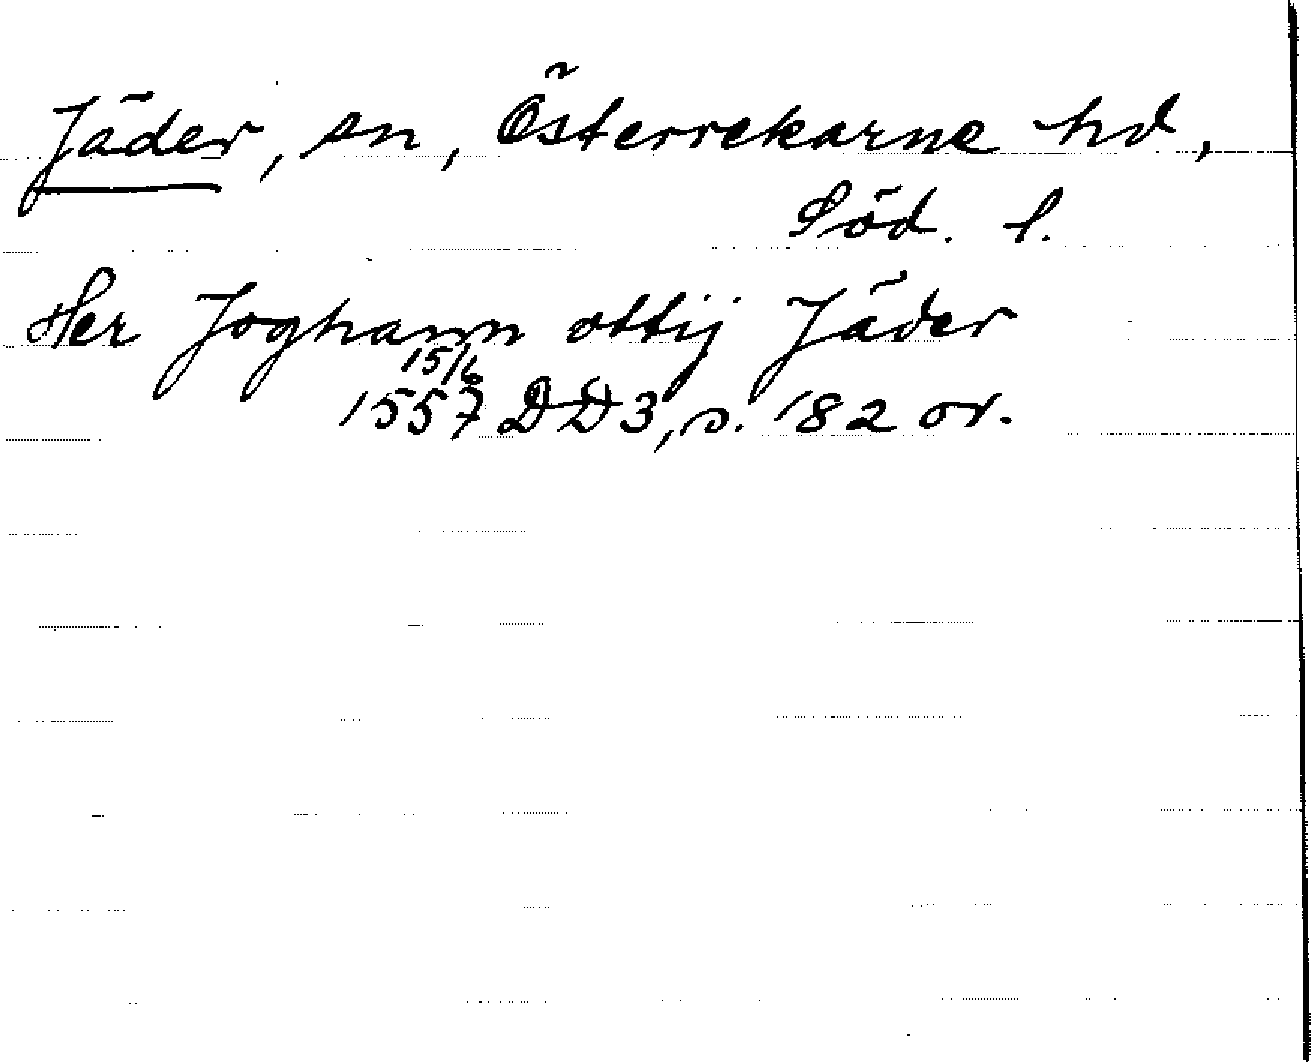 Jäder, sn, Österrekarne hd,
Söd. l.
Her Joghann ottij Jäder
15/6
1557 DD3, s. 182 or.